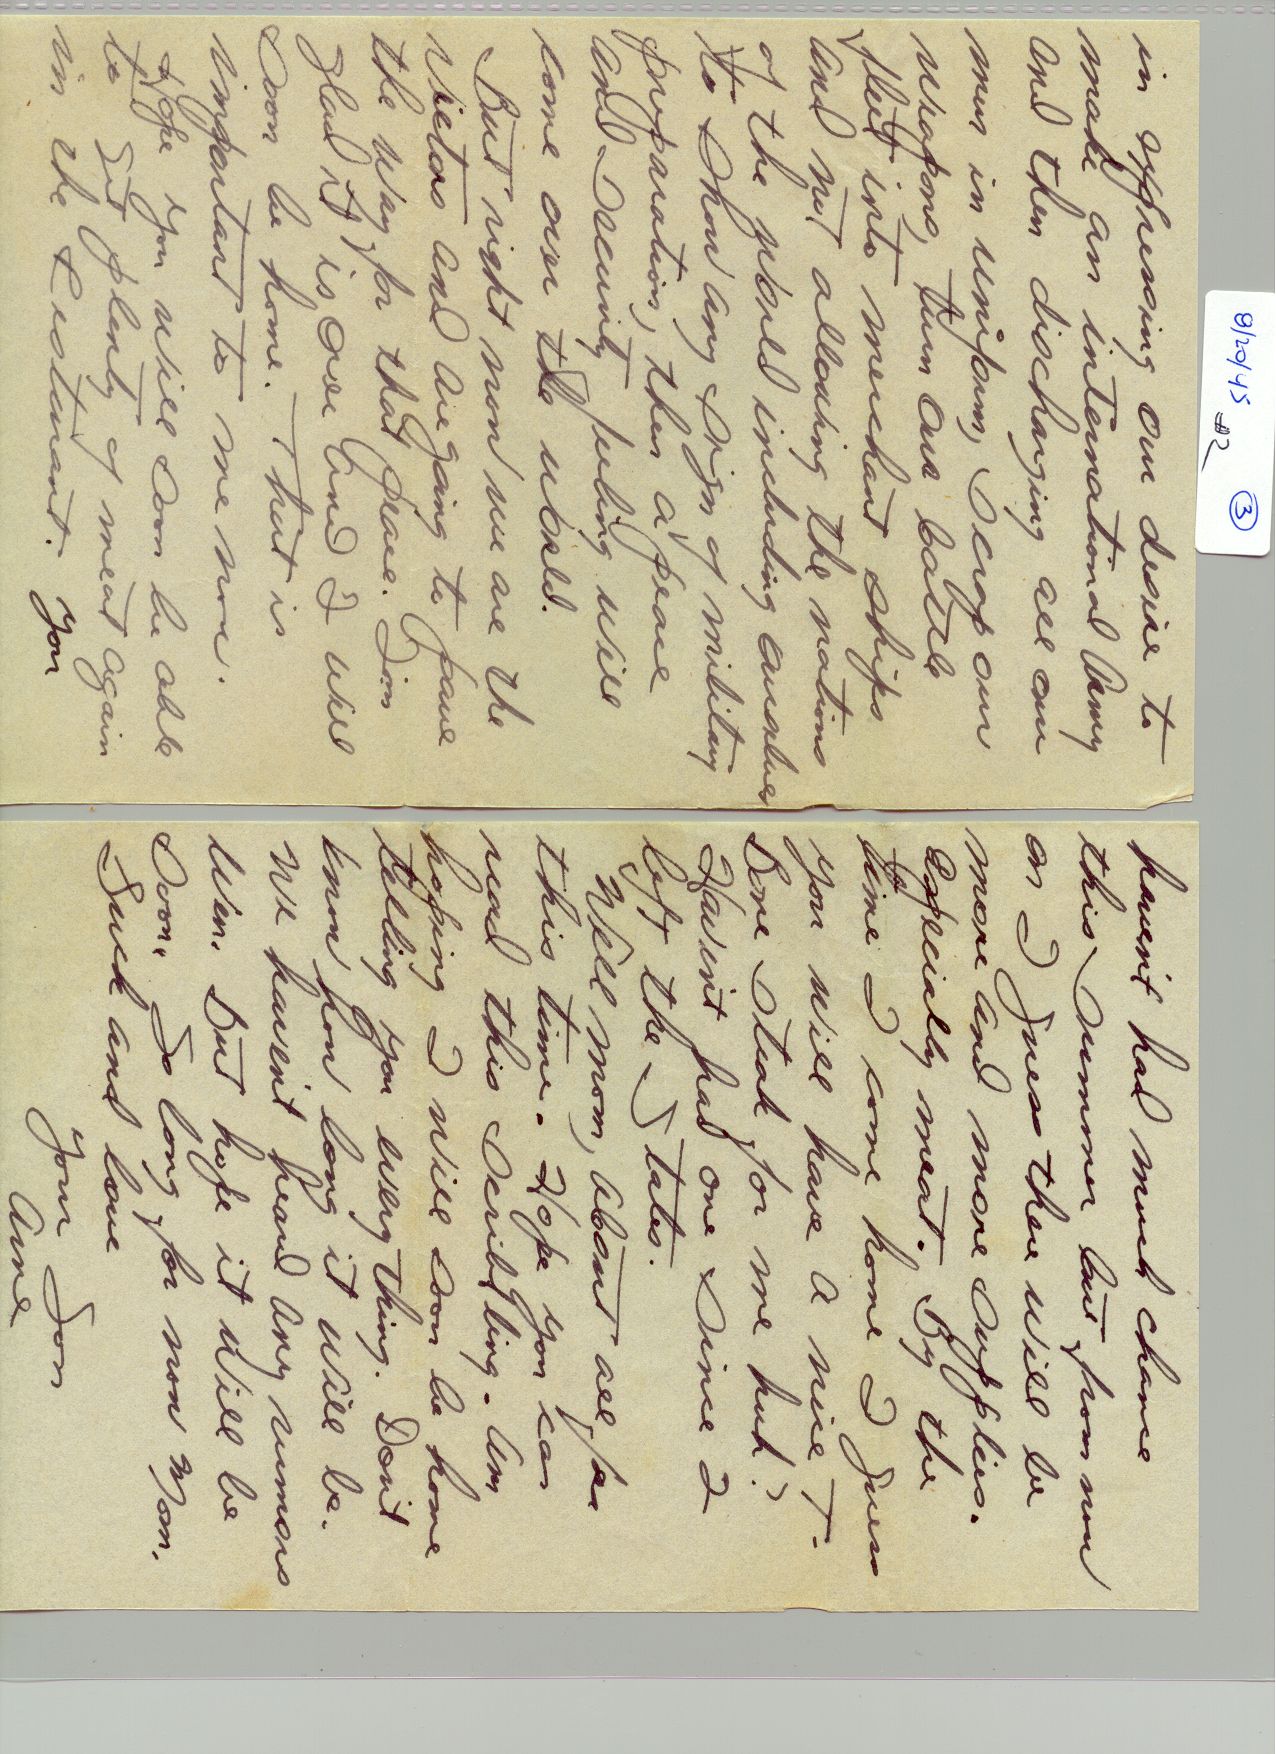 8/20/45
#2
3
in expressing our desire to
make an international Army
and then discharging all our
men in uniform, Scrap our
weapons, turn our battle
fleet into merchant ships
and not allowing the nations
of the world including ourselves
to show any sign of military
preparation, then a peace
and security feeling will
come over the world.
But right now we are the
Victors and are going to pave
the way for that peace. Im
glad it is over and I will
soon be home. That is
important to me now.
Hope you will soon be able
to get plenty of meat again
in the Restaurant. You
havent had much chance
this summer but from now
on I guess there will be
more and more supplies.
Especially meat. By the
time I come home I guess
you will have a nice T-
Bone Steak for me huh?
Havint had one since I
left the States.
Well mom, about all for
this time. Hope you can
read this scribbling. Am
hoping I will soon be home
telling you every thing. Don't
know how long it will be.
We havent heard any rumors
even. But hope it will be
Soon. So long for now Mom.
Luck and love
Your Son
Arne